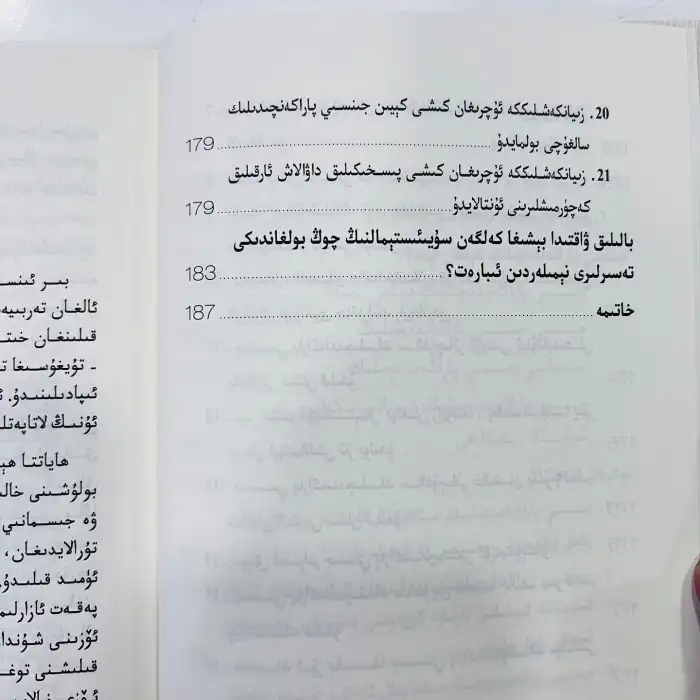 20. زىيانكەشلىككە ئۇچرىغان كىشى كېيىن جىنسىي پاراكەنچىدىلىك
سالغۇچى بولمايدۇ ........ 179
21. زىيانكەشلىككە ئۇچرىغان كىشى پىسخىكىلىق داۋالاش ئارقىلىق
كەچۈرمىشلىرىنى ئۇنتالايدۇ ........ 179
بالىلىق ۋاقتىدا بېشىغا كەلگەن سۇيىئىستېمالنىڭ چوڭ بولغاندىكى
تەسىرلىرى نېمىلەردىن ئىبارەت؟ ........ 183
خاتىمە ........ 187
بىر ئىنس
ئالغان تەربىيە
قىلىنغان خىت
- تۇيغۇسىغا ت
ئىپادىلىنىدۇ.
ئۇنىڭ لاتاپەتل
ھاياتتا ھې
بولۇشىنى خال
ۋە جىسمانىي
تۇرالايدىغان،
ئۈمىد قىلىدۇ.
پەقەت ئازارلى
ئۆزىنى شۇندا
قىلىشنى توغ